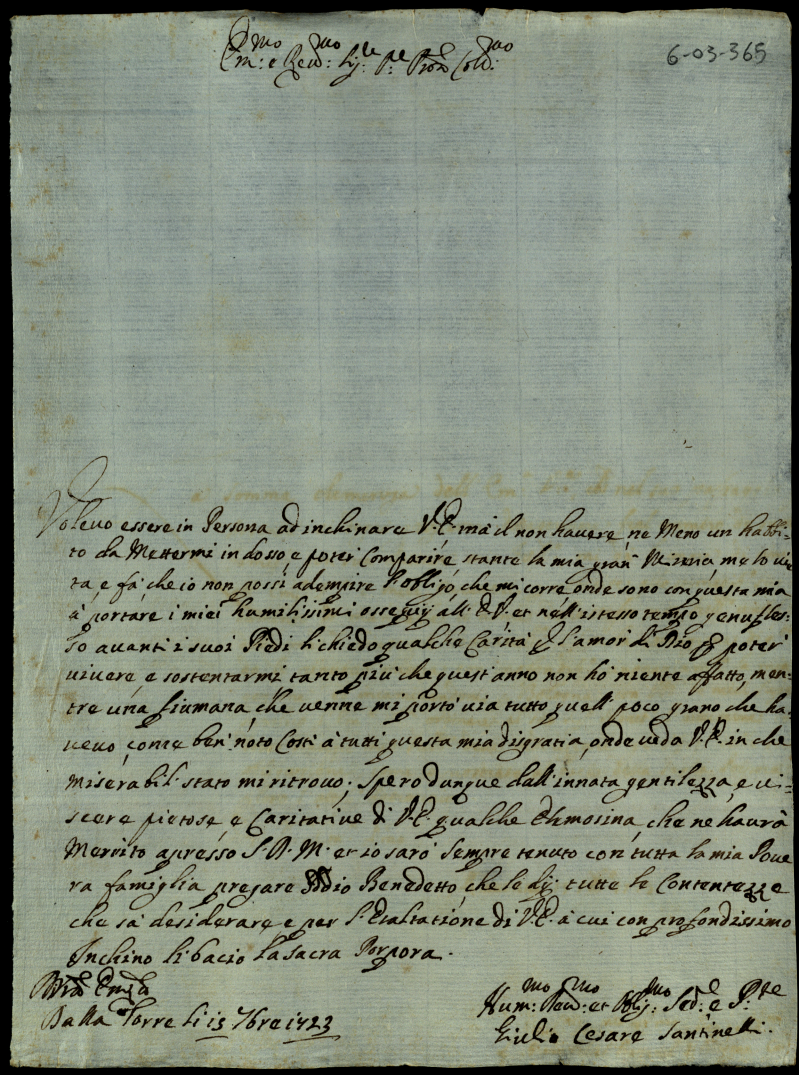 6-03-365
Em:mo e Reu:mo Sig:re P:re Pron Col:mo
Voleuo essere in Persona ad inchinare V.E. mà il non hauere ne Meno un habbi-
to da Mettermi in dosso, e poter' Comparire stante la mia gran' Miseria, me lo uie
ta e fà che io non possi adempire l'obligo, che mi corre, onde sono con questa mia
à portare i miei humilissimi ossequij all' E.V. et nell' istesso tempo genufles-
so auanti i suoi Piedi li chiedo qualche Carità p l'amor' di Dio p poter'
uiuere, e sostentarmi tanto più che quest' anno non hò niente affatto, men-
tre una fiumana, che uenne mi portò uia tutto quell' poco grano che ha-
ueuo, come ben' noto Costì à tutti questa mia disgratia, onde ueda V.E. in che
miserabil' stato mi ritrouo; Spero dunque dall' innata gentilezza, e ui-
scere pietose, e Caritatiue di V.E. qualche Elemosina, che ne haurà
Merrito apresso S.D.M. et io sarò Sempre tenuto con tutta la mia Poue
ra famiglia pregare Iddio Benedetto, che le dij tutte le Contentezze
che sà desiderare e per l'Esaltatione di V.E. à cui con profondissimo
Inchino li bacio la sacra Porpora.
Dalla Torre li 13 7bre 1723
Hum:mo Deu:mo et Obblig:mo Ser:e e S:re
Giulio Cesare Santinelli.